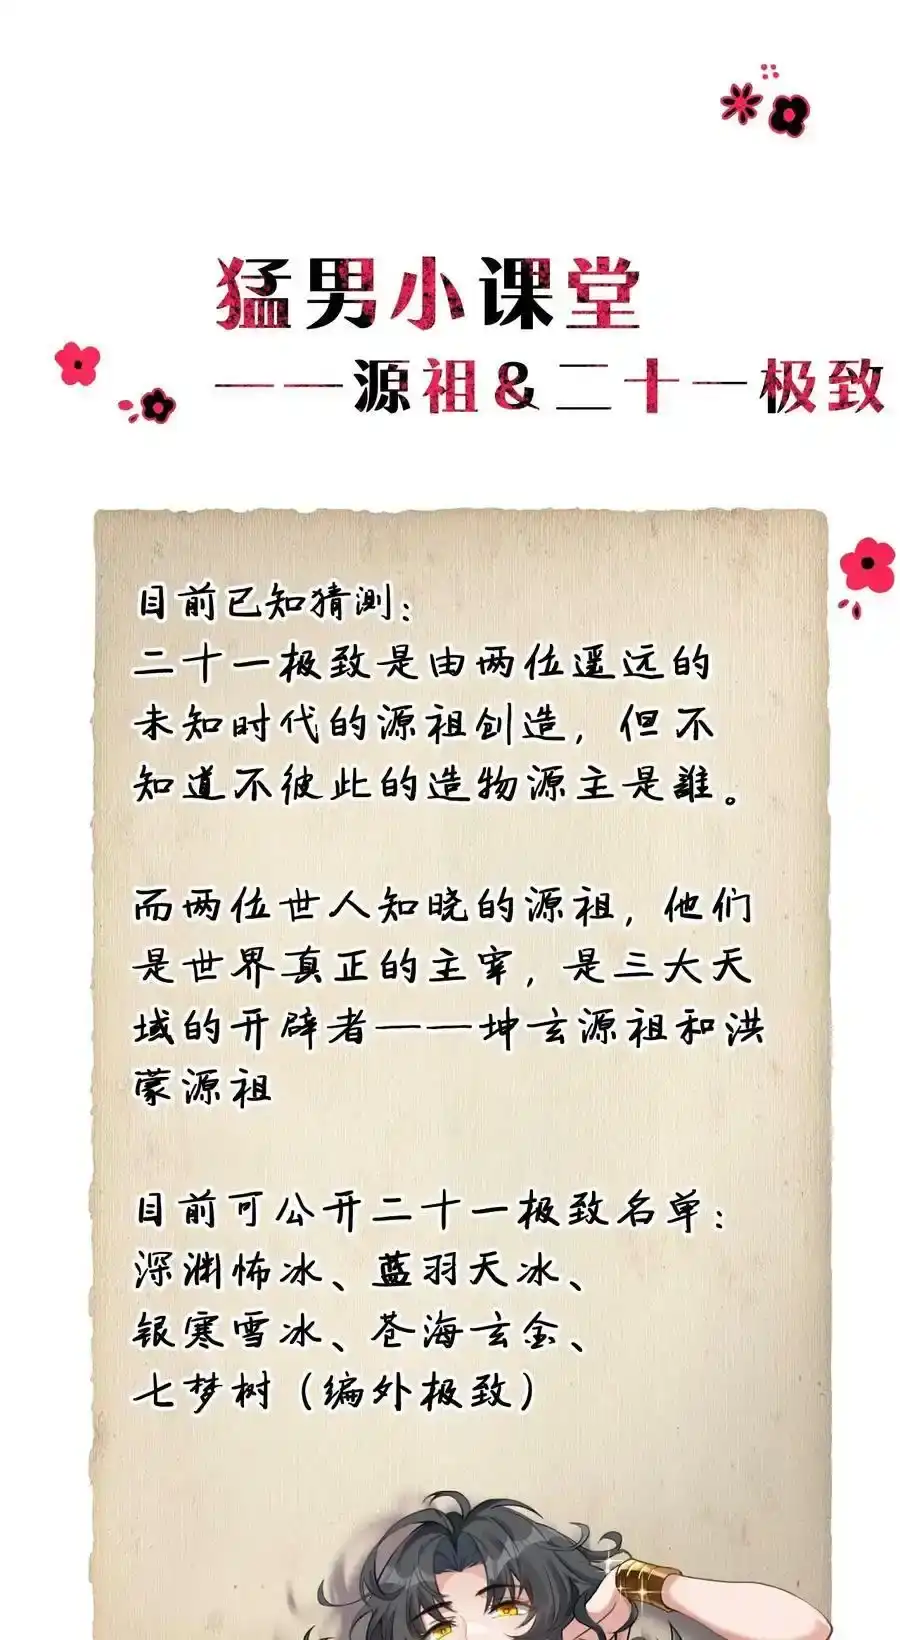 猛男小课堂
——源祖&二十一极致
目前已知猜测:
二十一极致是由两位遥远的
未知时代的源祖创造，但不
知道不彼此的造物源主是誰。
而两位世人知晓的源祖，他们
是世界真正的主宰，是三大天
域的开辟者——坤玄源祖和洪
蒙源祖
目前可公开二十一极致名单:
深渊怖冰、蓝羽天冰、
银寒雪冰、苍海玄金、
七梦树（编外极致）